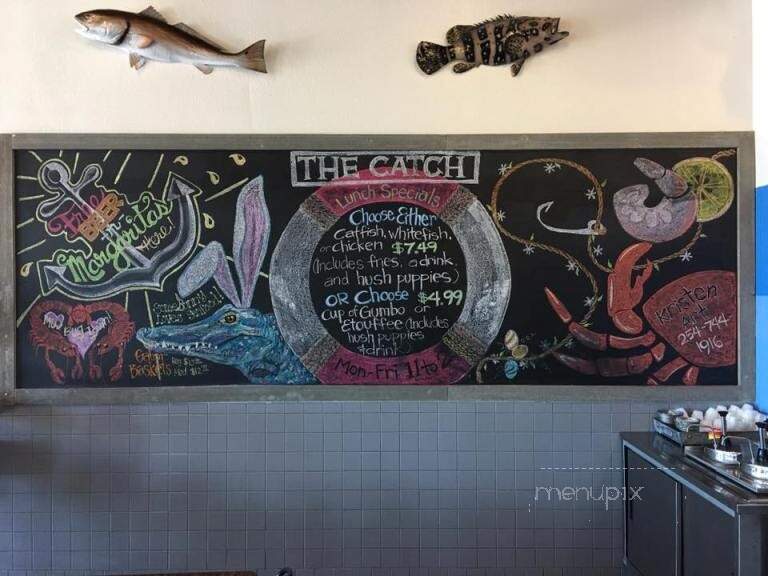 THE CATCH
Lunch Specials
Choose Either
Catfish, whitefish,
or chicken $7.49
(Includes fries, a drink
and hush puppies)
OR Choose $4.99
cup of Gumbo or
Etouffee (Includes
hush puppies
+ drink)
Mon-Fri 11 to
BEER
Margaritas
Here!
Gator
Baskets
Kristen
254-744
1916
menupix